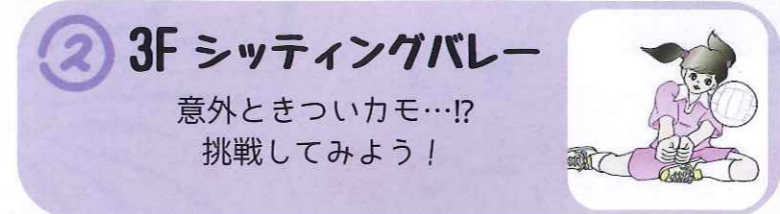 ② 3F シッティングバレー
意外ときついカモ…!?
挑戦してみよう！